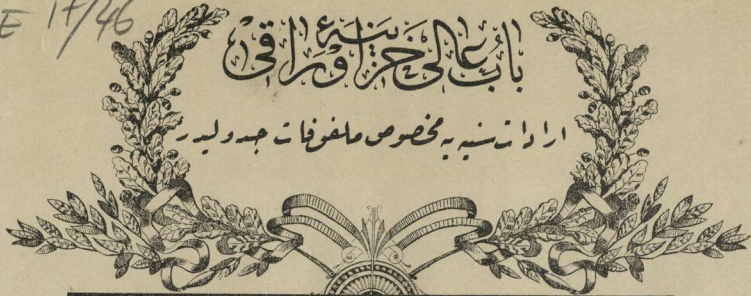 E 17/46
باب عالی خزینهٔ اوراقی
ارادات سنیه یه مخصوص ملفوفات جدولیدر